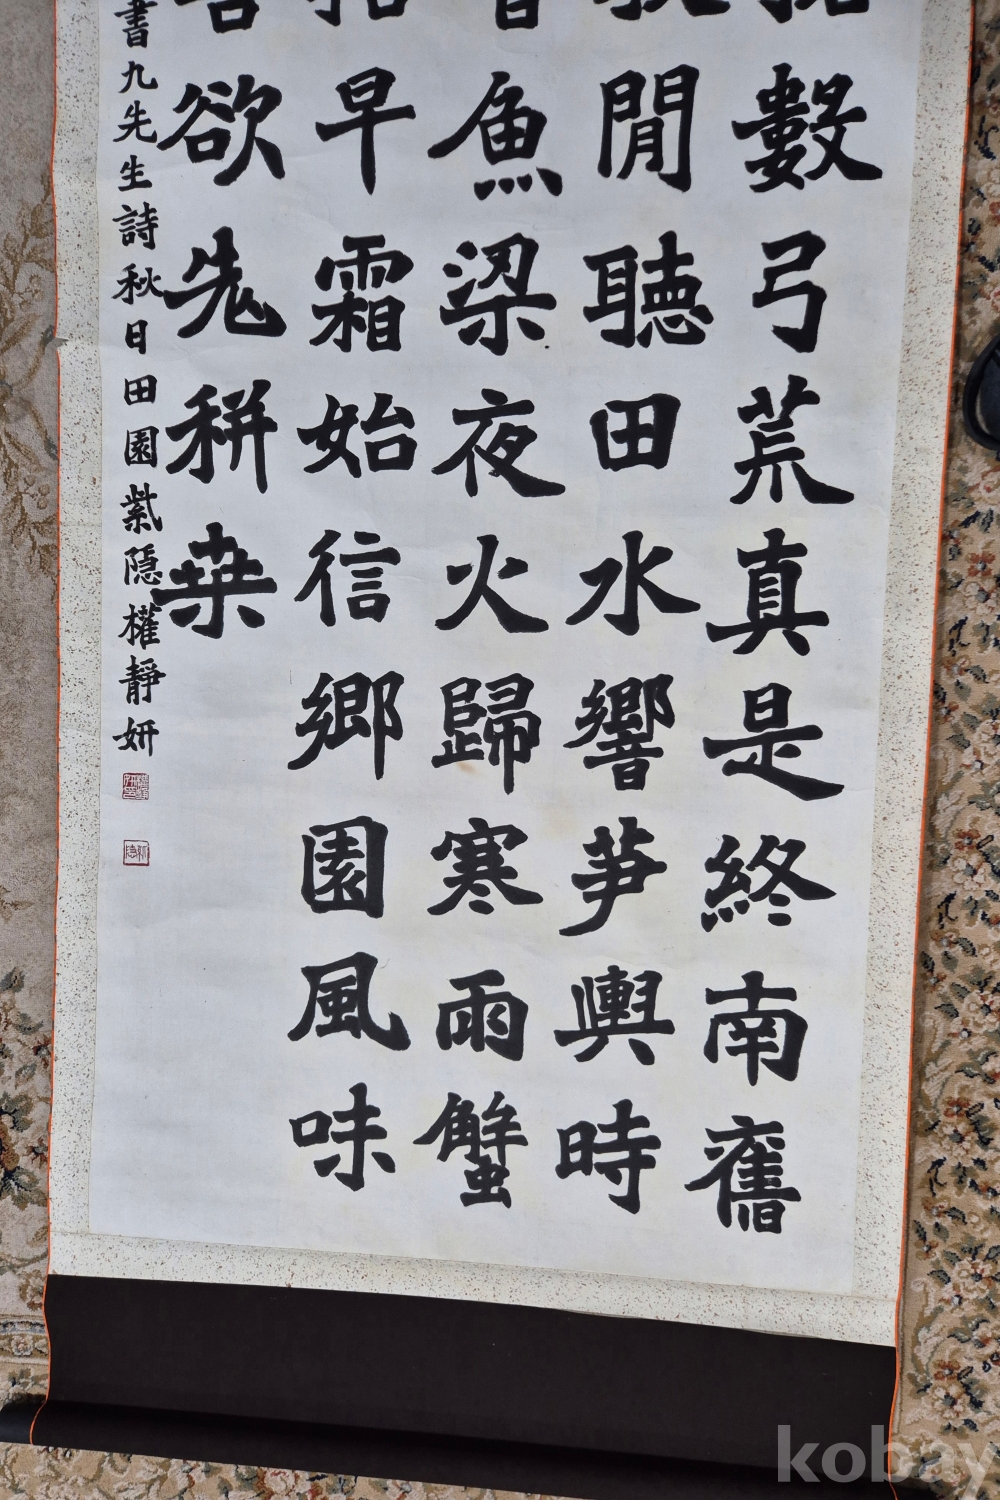 數弓荒真是終南舊
閒聽田水響笋輿時
魚梁夜火歸寒雨蟹
早霜始信鄉園風味
欲先桒
書九先生詩秋日田園紫隱權靜姸
kobay